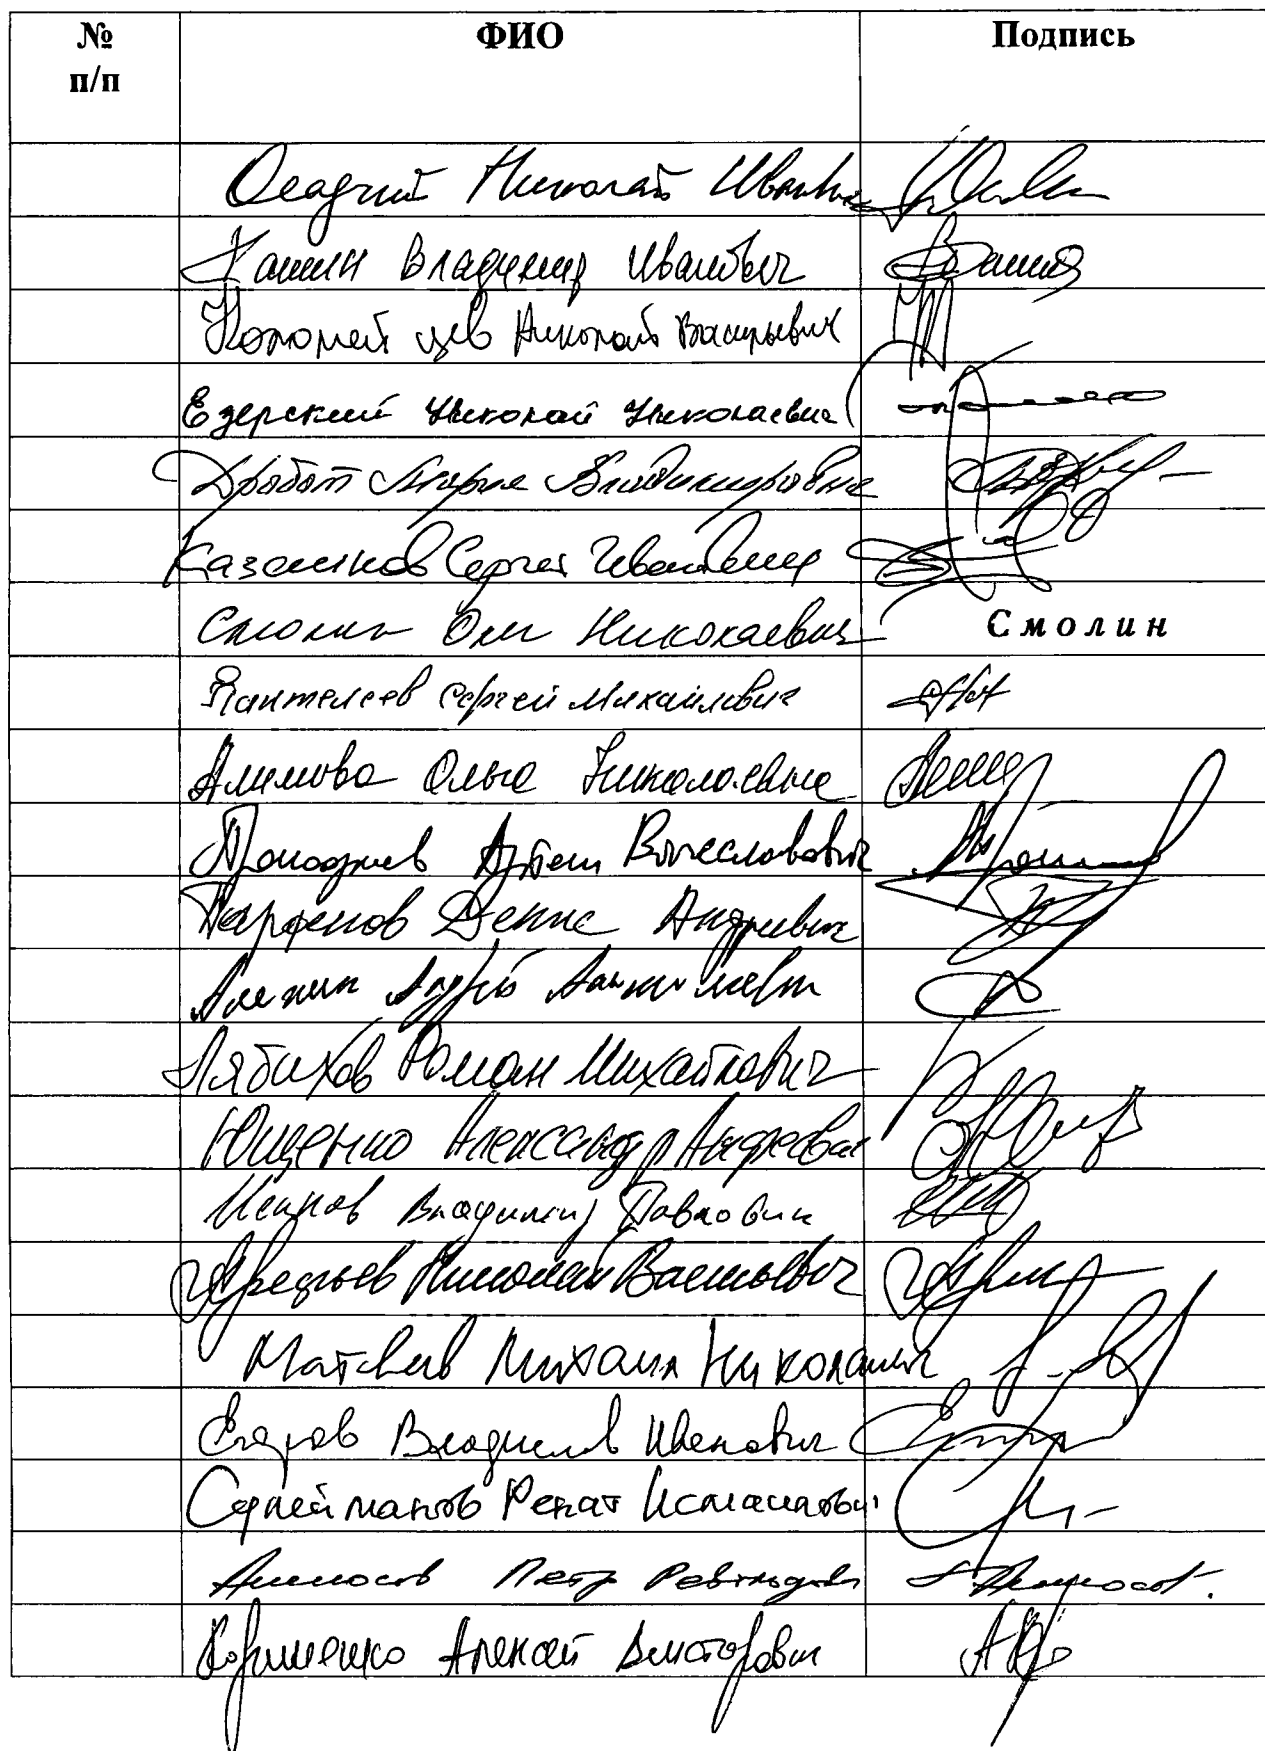 № п/п ФИО Подпись
Осадчий Николай Иванович
Кашин Владимир Иванович
Коломейцев Николай Васильевич
Езерский Николай Николаевич
Дробот Мария Владимировна
Казанков Сергей Иванович
Смолин Олег Николаевич Смолин
Пантелеев Сергей Михайлович
Алимова Ольга Николаевна
Прокофьев Артём Вячеславович
Парфенов Денис Андреевич
Алехин Андрей Анатольевич
Лябихов Роман Михайлович
Ющенко Александр Андреевич
Исаков Владимир Павлович
Арефьев Николай Васильевич
Матвеев Михаил Николаевич
Егоров Владислав Иванович
Сулейманов Ренат Исмаилович
Аммосов Петр Револьдович Аммосов.
Корниенко Алексей Викторович